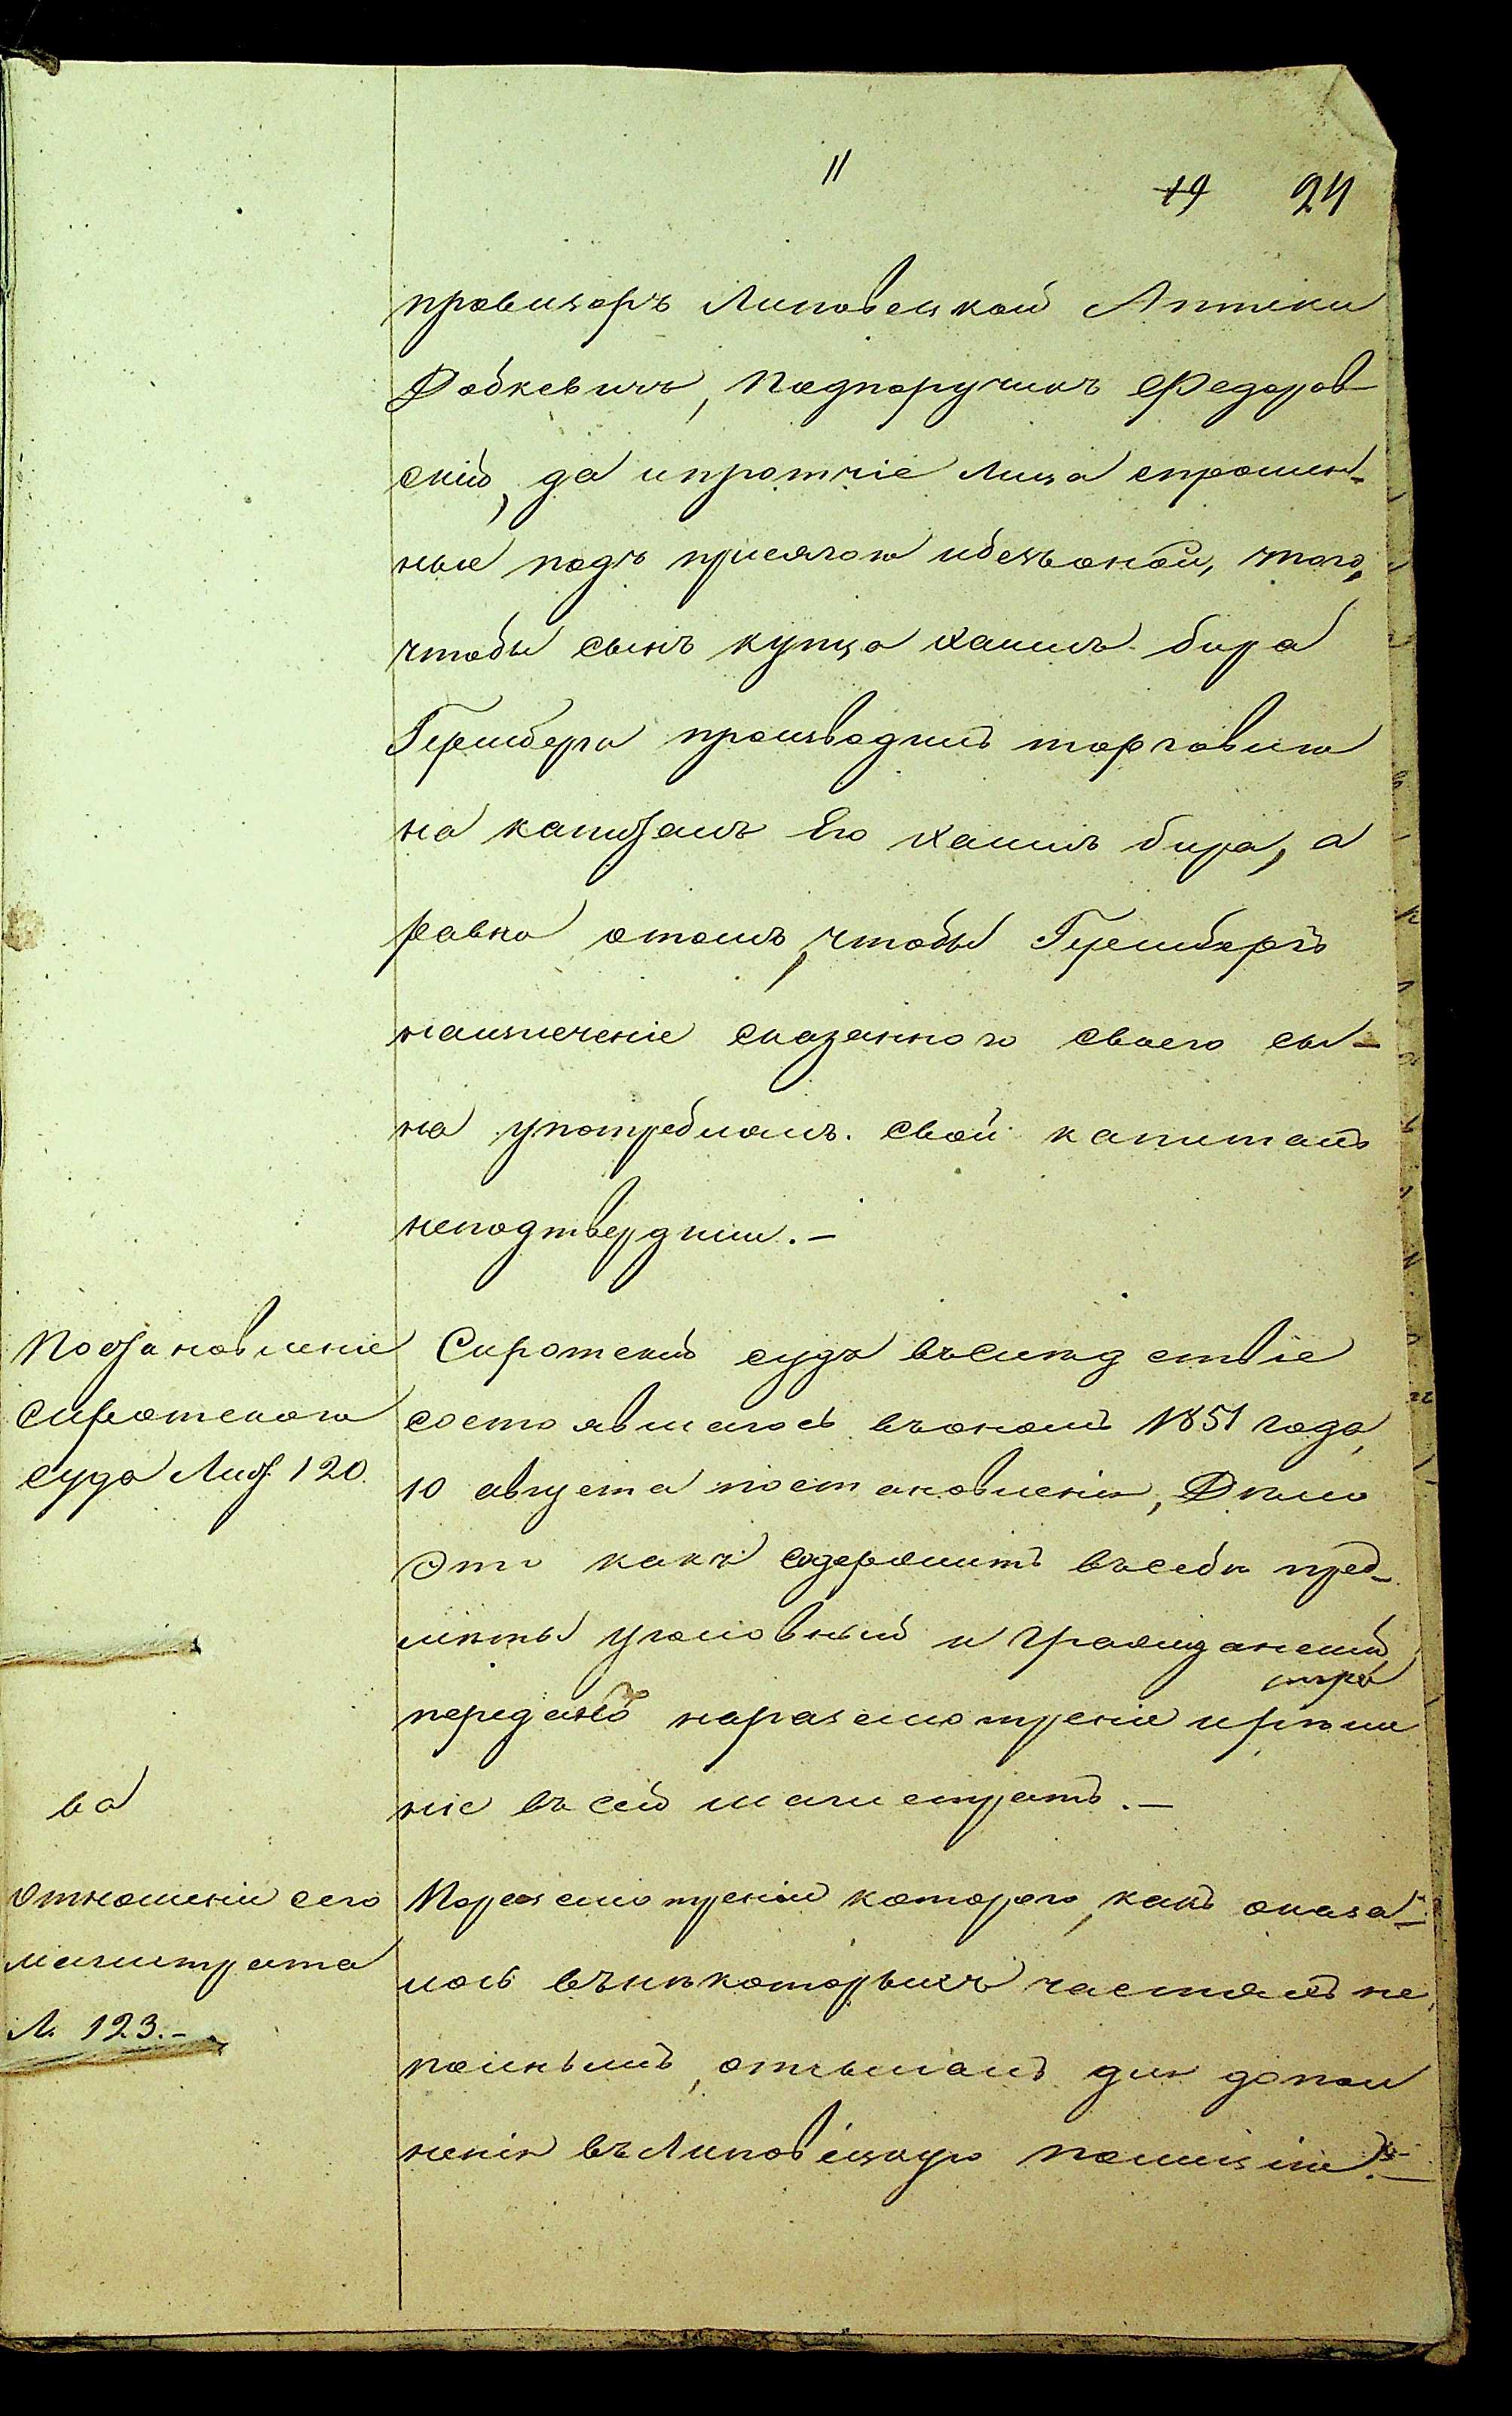 11
19 24
провизоръ Липовецкой Аптеки
Добкевичъ, Подпоручикъ Федоров
скій, да ипротчіе лица спрошен-
ные подъ присягою ибезъоной, того,
чтобы сынъ купца Хаимъ бира
Геришберга производилъ торговлю
на капиталъ Его Хаимъ бира, а
равно отомъ, чтобы Геришбергъ
наизлеченіе сказанного своего сы-
на употреблялъ свой капиталъ
неподтвердили.-
Постановленіе
Сиротского
суда Лист. 120.
Сиротскій судъ въслѣдствіе
состоявшагось въономъ 1851 года,
10 августа постановленія, Дѣло
Это какъ содержитъ въсебѣ пред-
мѣты уголовный и гражданскій,
передано наразсмотреніе ирѣше
ніе въ сей магистратъ.-
во
Отношеніи сего
магистрата
Л. 123.-
Поразсмотреніи которого, какъ оказа-
лось вънѣкоторыхъ частяхъ не
полнымъ, отсылалъ для допол
ненія въЛиповецкую полицію.-